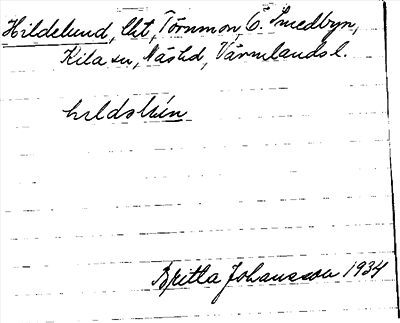 Hildelund, lht, Törnmon, Ö. Smedbyn,
Kila sn, Näshd, Värmlands l.
hildslún
Britta Johansson 1934